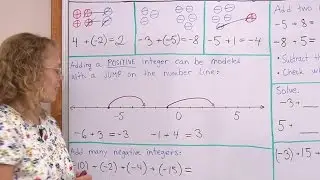 4 + (-2) = 2
-3 + (-5) = -8
-5 + 1 = -4
Add two
-5 + 8 =
-8 + 5 =
• Subtract th
• Check wh
Adding a POSITIVE integer can be modeled
with a jump on the number line:
-5 0 5
-6 + 3 = -3
-1 + 4 = 3
Solve:
-3 +
5 +
Add many negative integers:
-10) + (-2) + (-4) + (-15) =
(-3) + 15 +